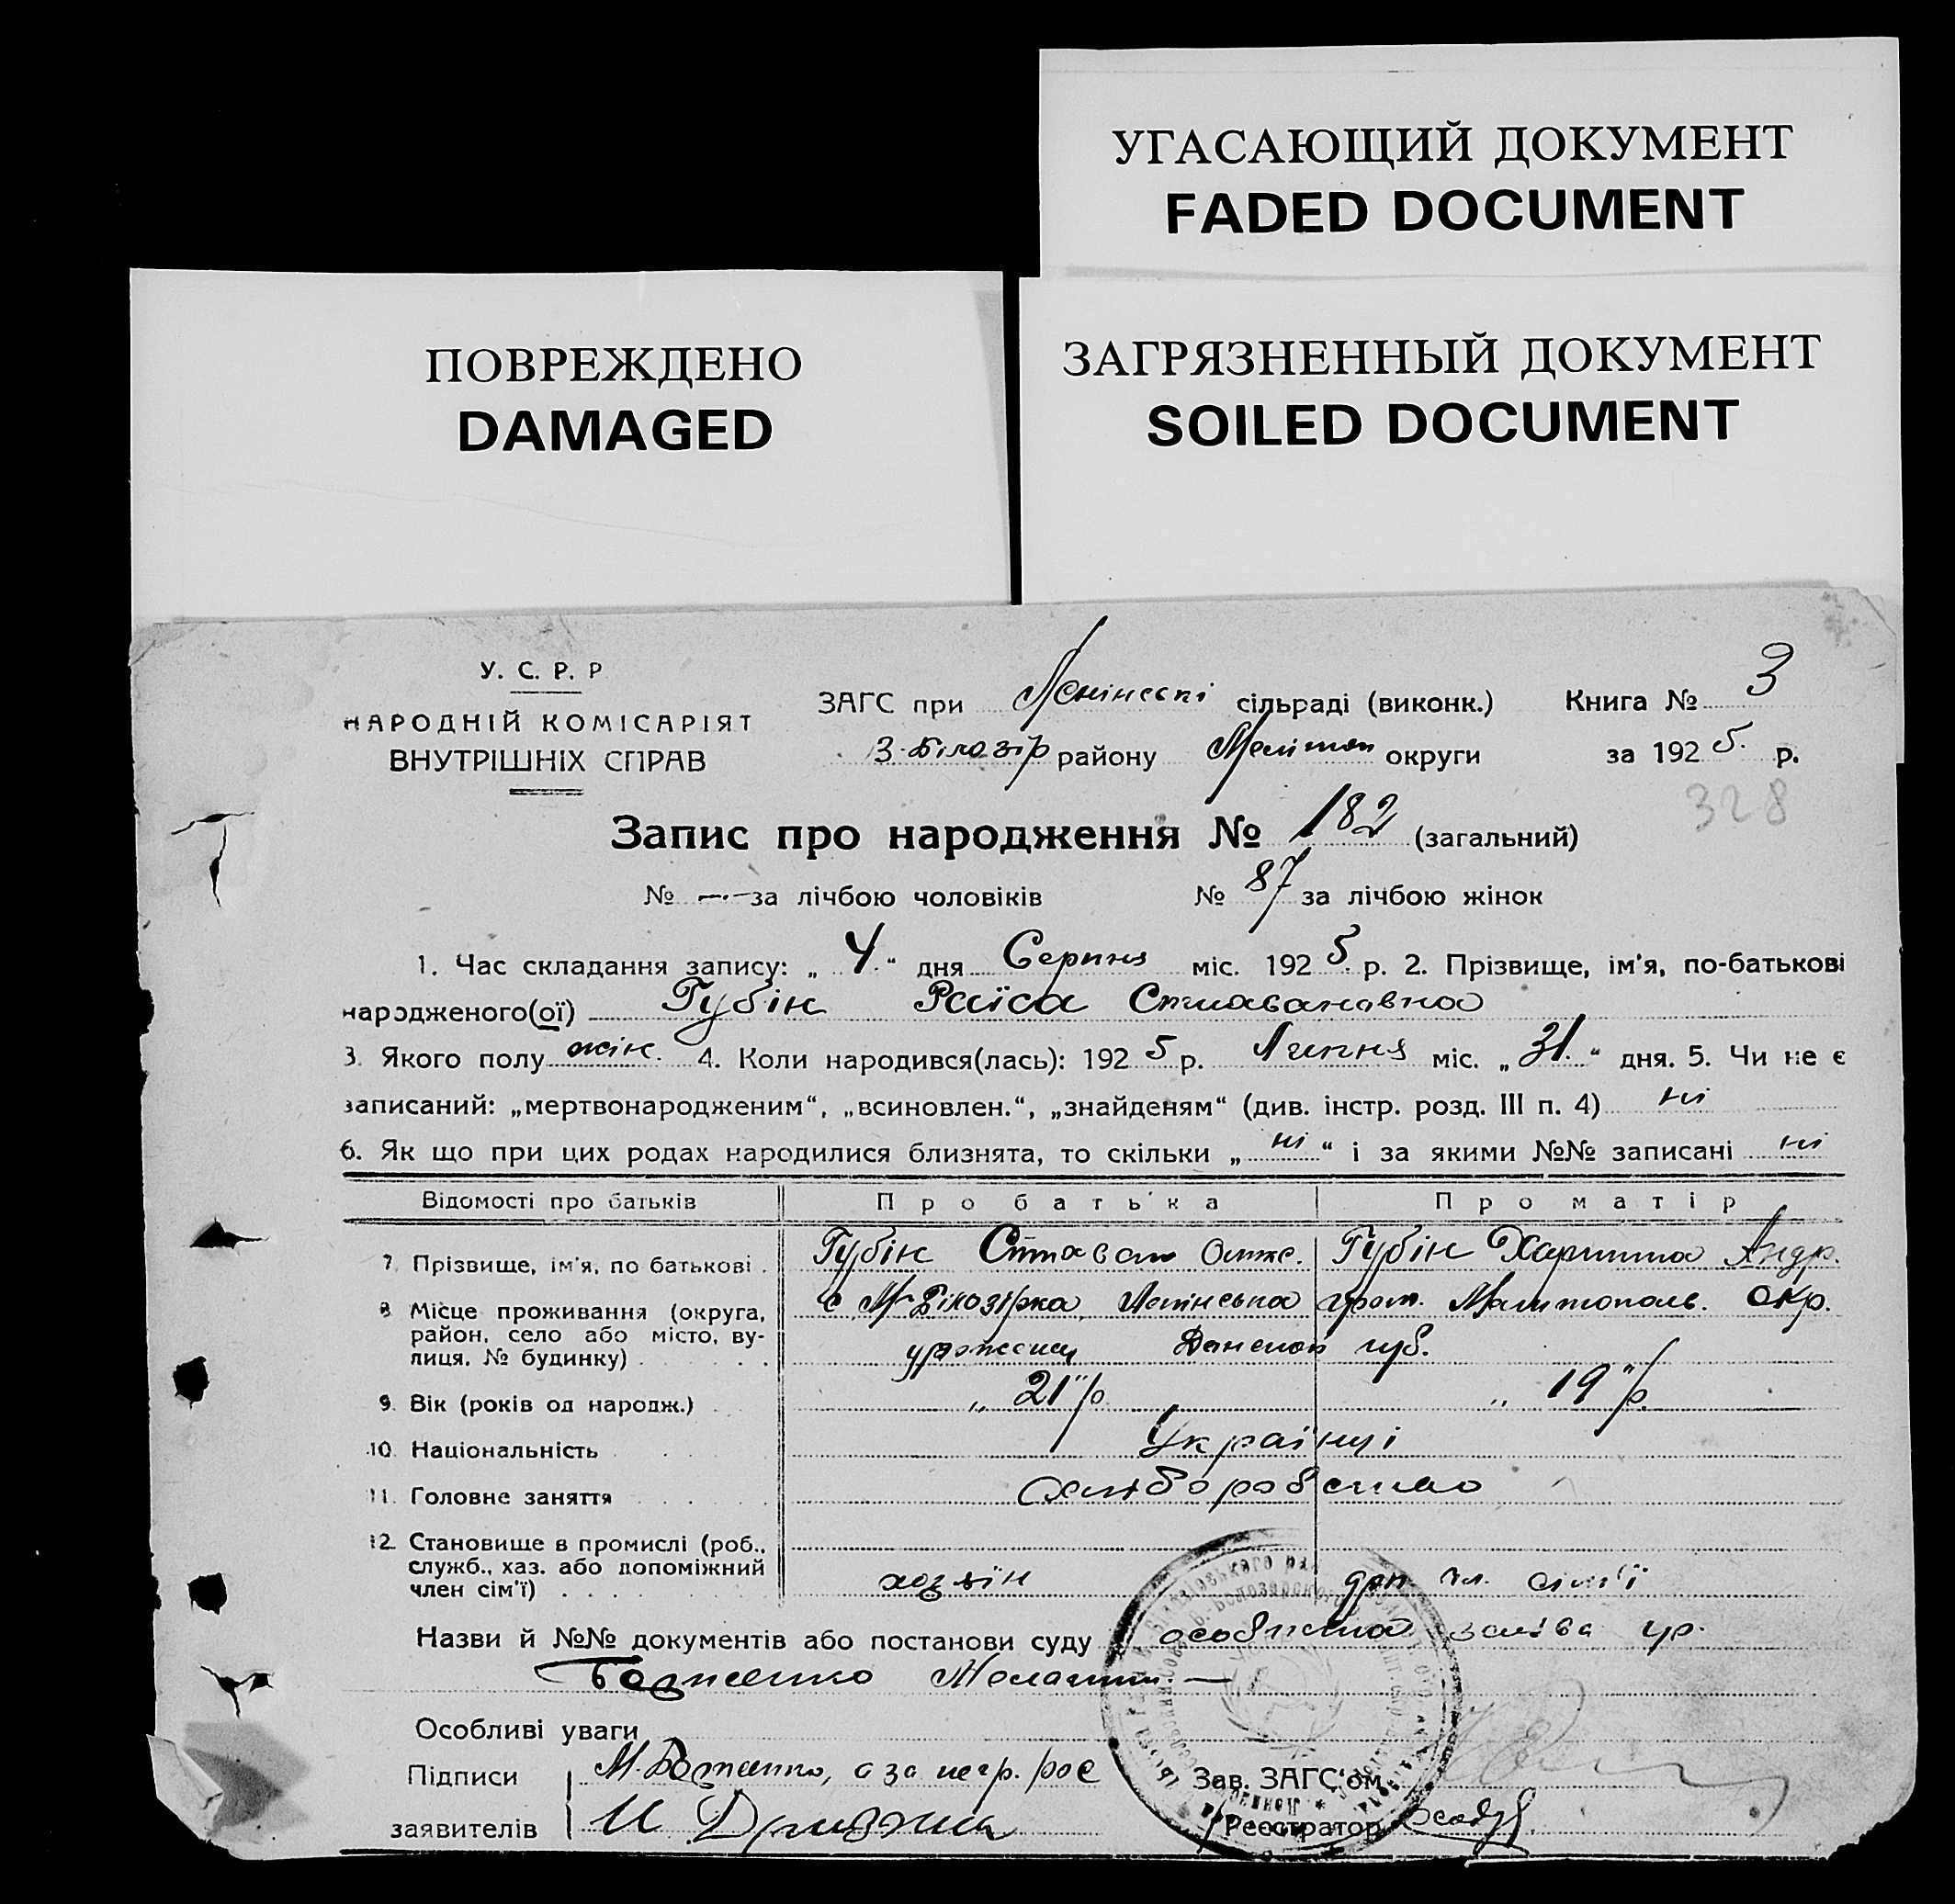 УГАСАЮЩИЙ ДОКУМЕНТ
FADED DOCUMENT
ПОВРЕЖДЕНО
DAMAGED
ЗАГРЯЗНЕННЫЙ ДОКУМЕНТ
SOILED DOCUMENT
У. С. Р. Р
НАРОДНІЙ КОМІСАРІЯТ
ВНУТРІШНІХ СПРАВ
ЗАГС при Ленінські сільраді (виконк.) Книга № 3
В-Білозір району Меліт округи за 1925 р.
328
Запис про народження № 182 (загальний)
№ — за лічбою чоловіків № 87 за лічбою жінок
1. Час складання запису: „4“ дня Серпня міс. 1925 р. 2. Прізвище, ім'я, по-батькові
народженого(ої) Губін Раїса
3. Якого полу жін. 4. Коли народився(лась): 1925 р. Липня міс. „31“ дня. 5. Чи не є
записаний: „мертвонародженим“, „всиновлен.“, „знайденям“ (див. інстр. розд. III п. 4) ні
6. Як що при цих родах народилися близнята, то скільки „ні“ і за якими №№ записані ні
Відомості про батьків Про батька Про матір
7. Прізвище, ім'я, по батькові. Губін Губін Андр.
8. Місце проживання (округа, район, село або місто, вулиця, № будинку) с. М-Білозірка окр.
губ.
9. Вік (років од народж.) „21“ р. „19“ р.
10. Національність Українці
11. Головне заняття хліборобство
12. Становище в промислі (роб., служб., хаз. або допоміжний член сім'ї) хозяїн доп. чл. сім'ї
Назви й №№ документів або постанови суду особиста заява гр.
Боженко
Особливі уваги
Підписи М. Боженко, а за негр. рос
заявителів И
Зав. ЗАГС'ом
Реєстратор